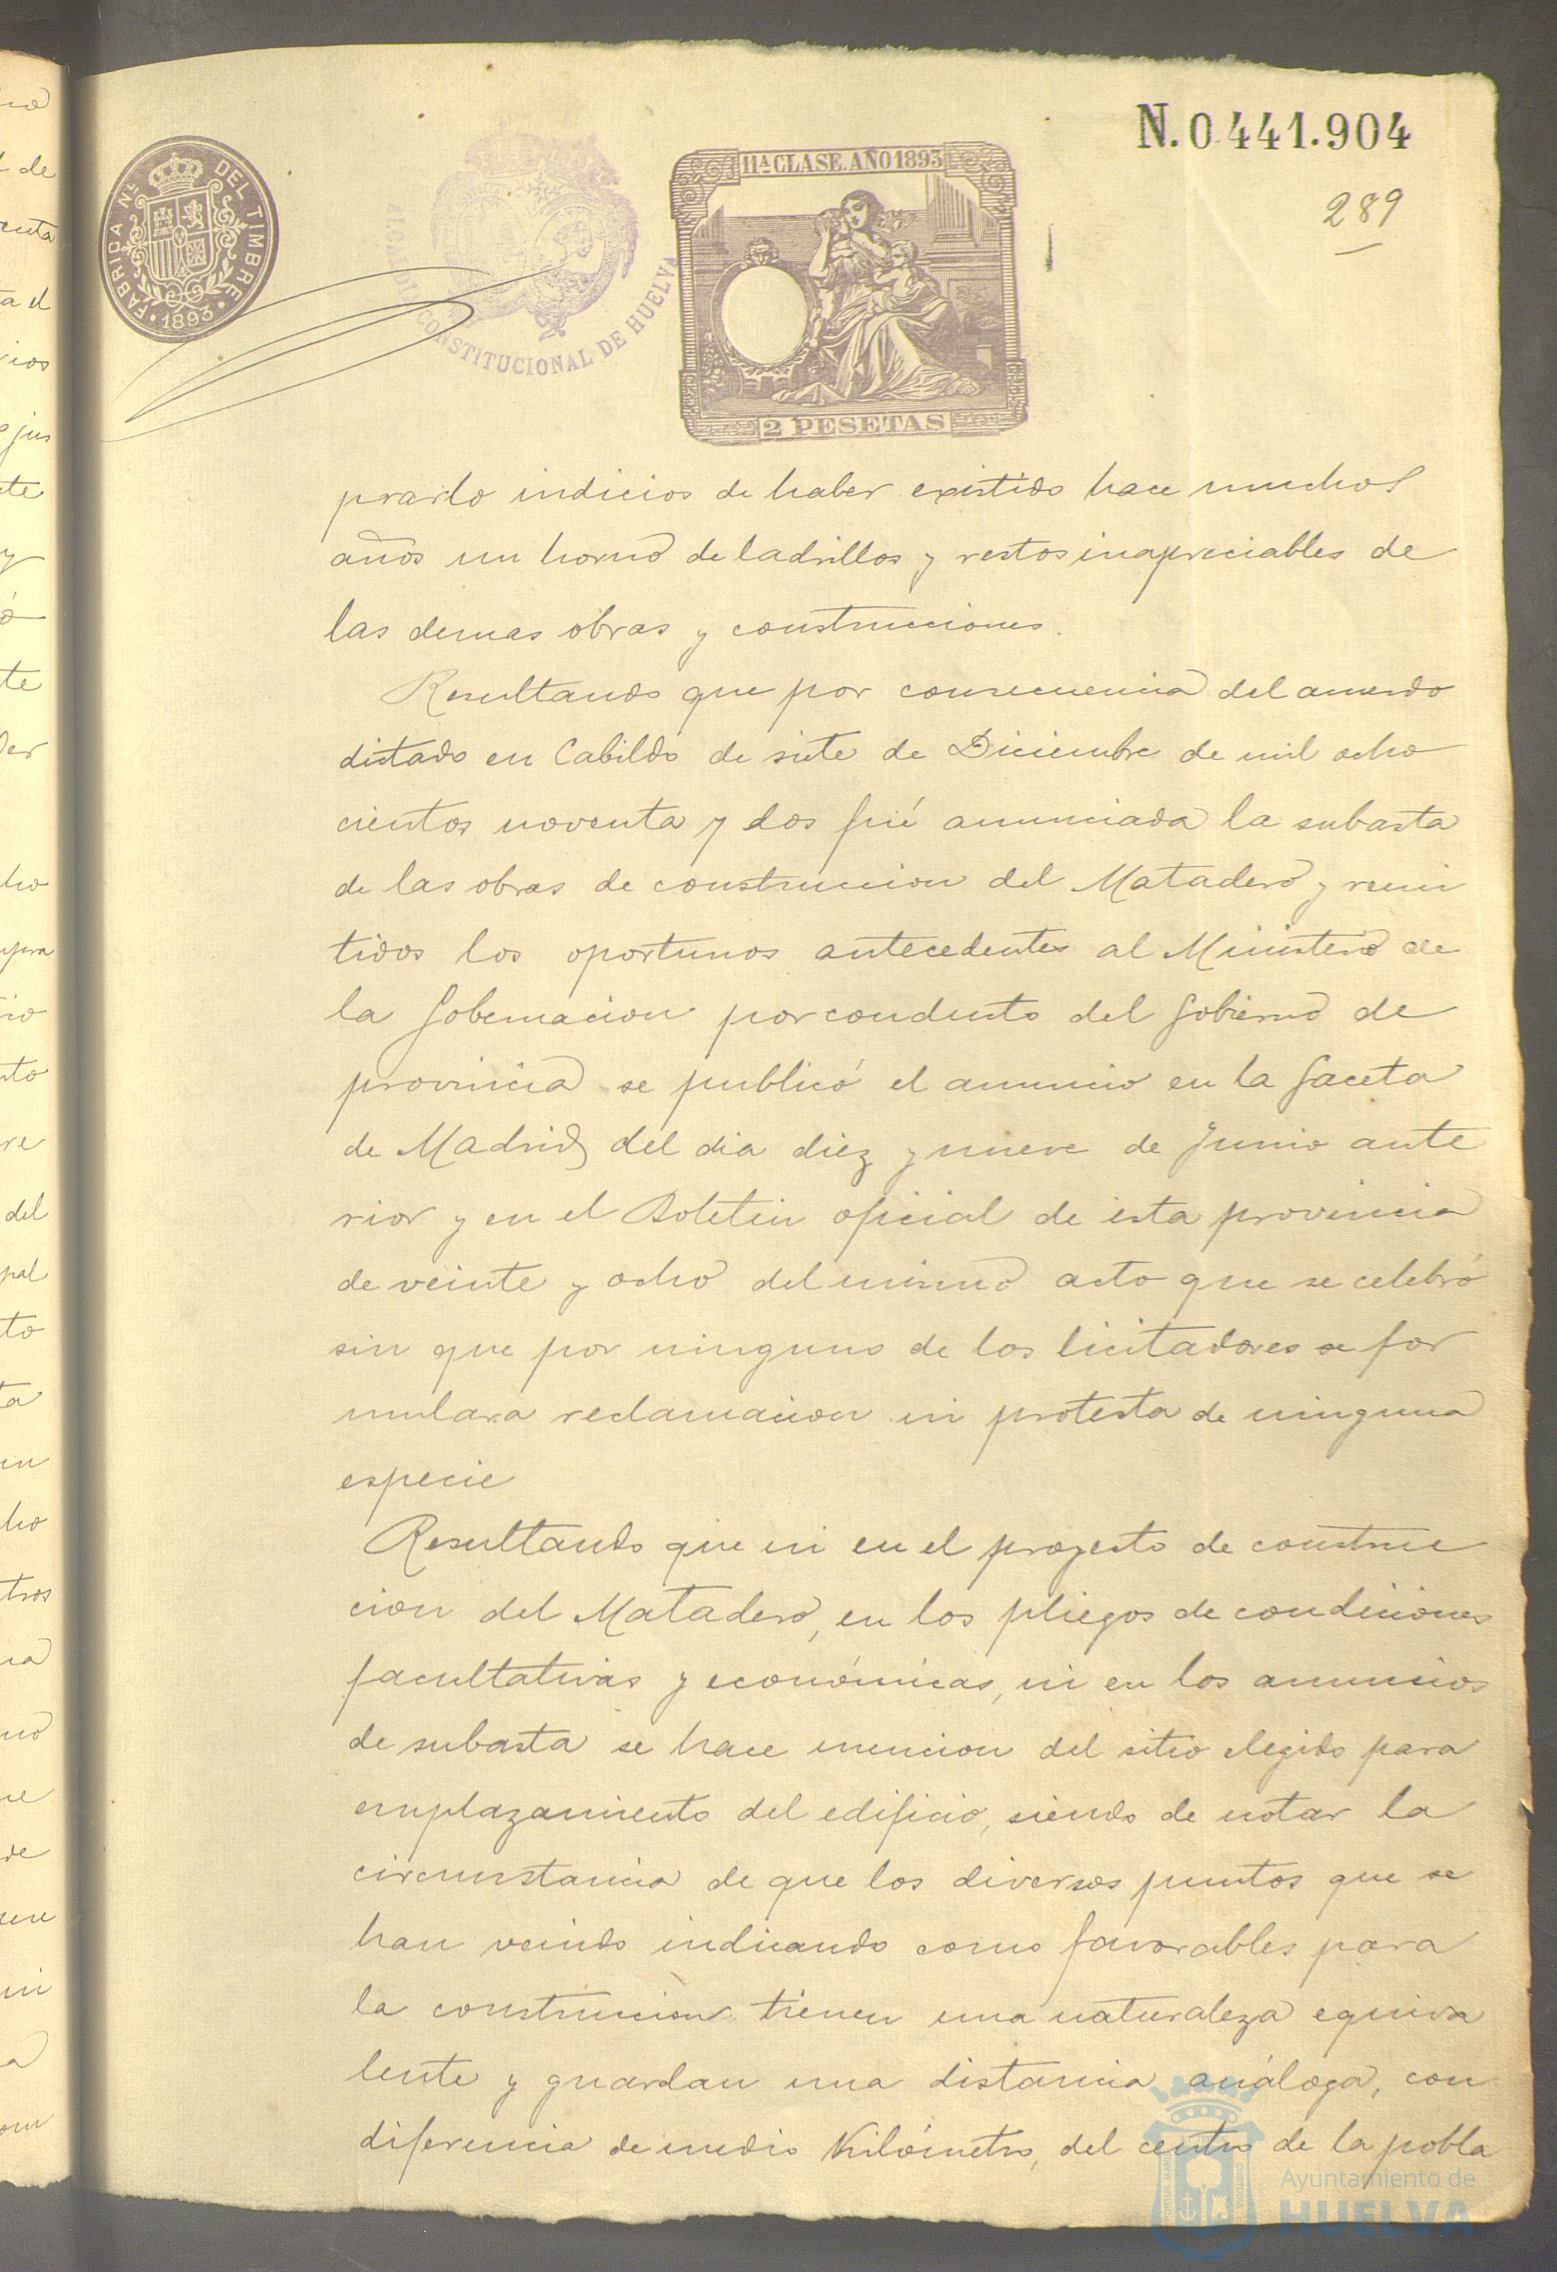 N. 0.441.904
289
FABRICA NL. DEL TIMBRE
1893
CONSTITUCIONAL DE HUELVA
11ª CLASE. AÑO 1893
2 PESETAS
prardo indicios de haber existido hace muchos
años un horno de ladrillos y restos inapreciables de
las demas obras y construcciones.
Resultando que por consecuencia del acuerdo
dictado en Cabildo de siete de Diciembre de mil ocho
cientos noventa y dos fué anunciada la subasta
de las obras de construccion del Matadero y remi
tidos los oportunos antecedentes al Ministerio de
la Gobernacion por conducto del Gobierno de
provincia se publicó el anuncio en la Gaceta
de Madrid del dia diez y nueve de Junio ante
rior y en el Boletin oficial de esta provincia
de veinte y ocho del mismo acto que se celebró
sin que por ninguno de los licitadores se for
mulara reclamacion ni protesta de ninguna
especie
Resultando que ni en el proyecto de construc
cion del Matadero, en los pliegos de condiciones
facultativas y económicas, ni en los anuncios
de subasta se hace mencion del sitio elegido para
emplazamiento del edificio, siendo de notar la
circunstancia de que los diversos puntos que se
han venido indicando como favorables para
la construccion tienen una naturaleza equiva
lente y guardan una distancia análoga, con
diferencia de medio Kilómetro, del centro de la pobla
Ayuntamiento de
HUELVA